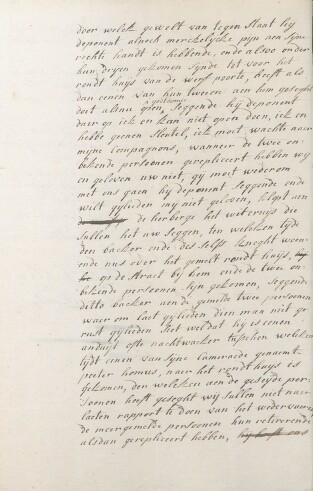 door welck gewelt van tegen staat hy
deponent alnoch merckelycke pyn aen syne
rechte handt is hebbende, ende alsoo onder
hun dryen gekomen synde tot voor het
rondt huys van de werf poorte, heeft als
dan eenen van hun tweeen aen hem geseght
doet alinu open, seggende hy deponent
daer op ick en kan niet open doen, ick en
hebbe geenen sleutel, ick moet wachten naer
myne compagnons, wanneer de twee on-
bekende persoonen gerepliceert hebben wy
en geloven uw niet, gy moet wederom
met ons gaen hy deponent seggende ende
wilt gylieden my niet geloven, klopt aen
de herberge het waterhuys die
sullen het uw seggen, ten welcken tyde
den backer ende des selfs knecht woon-
ende nus over het gemelt rondt huys,
op de straet by hem ende de twee on-
bekende persoonen syn gekomen, seggende
ditto backer aen de gemelde twee persoonen
waer om laet gylieden dien man niet ge
rust gylieden siet wel dat hy is eenen
anduyt ofte nachtwaker tusschen welcken
tydt eenen van syne cameraede genaemt
peeter homus, naer het rondt huys is
gekomen, den welcken aen de geseyde per-
soonen heeft geseght wy sullen niet naer
laeten rapport te doen van het wedervaeren
de meergemelde persoonen hun retirerende
alsdan gerepliceert hebben, ons